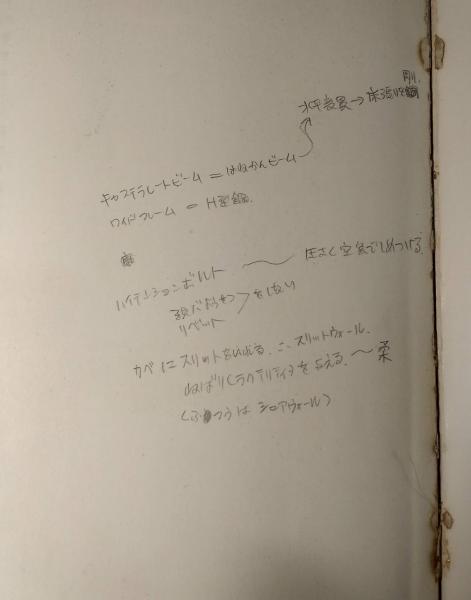 剛
キャステラレートビーム = はねかんビーム
ワイドフレーム = H型鋼.
ハイテンションボルト 〜 圧さく空気でしめつける.
リベット > をしない
カベにスリットをいれる. ∴ スリットウォール.
ねばり(ラクテリティ)を与える. 〜 柔
(ふつうは シェアウォール)